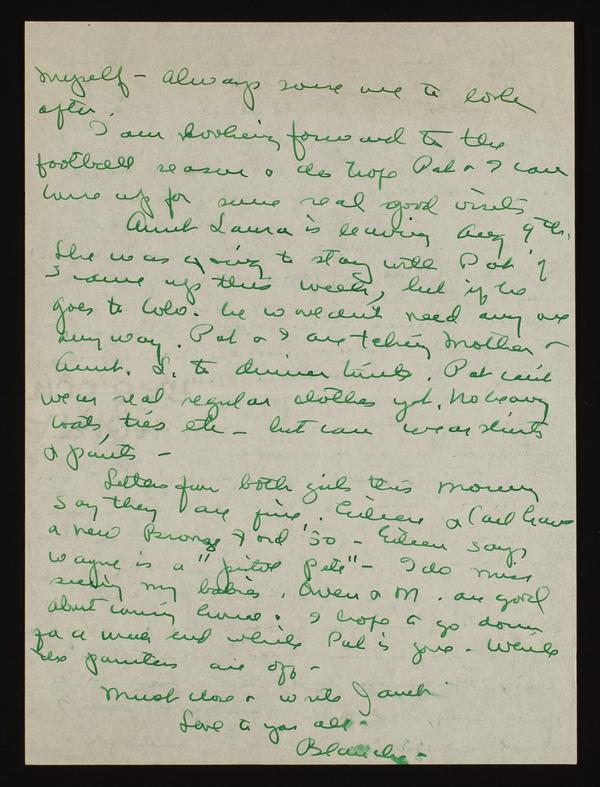 myself - always some one to look
after.
I am looking forward to the
football season & do hope Pat & I can
come up for some real good visits
Aunt Laura is leaving Aug 9th.
She was going to stay with Pat if
I came up this week, but if he
goes to Colo. he wouldn't need any one
anyway. Pat & I are taking Mother &
Aunt. L. to dinner tonite. Pat can't
wear real regular clothes yet. No heavy
coats ties etc - but can wear shirts
& pants -
Letters from both girls this morning
say they are fine. Eileen & Carl have
a new Bronze Ford "50 - Eileen says
Wayne is a "pistol Pete" - I do miss
seeing my babies. Owen & M. are good
about coming home. I hope to go down
for a week end while Pat is gone. While
painters are off -
Must close & write Janet
Love to you all -
Blanche -